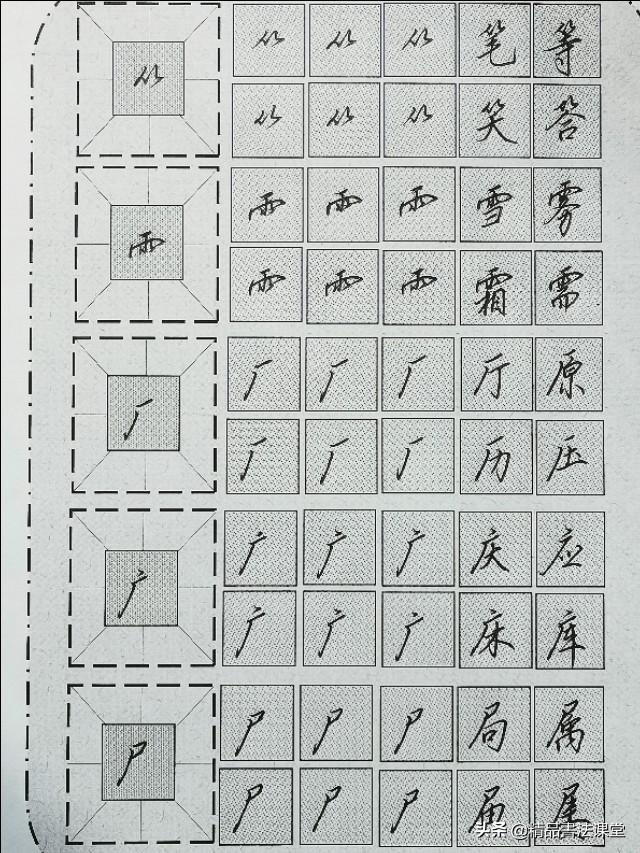 ⺮
⺮ ⺮ ⺮ 笔 等
⺮ ⺮ ⺮ 笑 答
雨
雨 雨 雨 雪 雾
雨 雨 雨 霜 需
厂
厂 厂 厂 厅 原
厂 厂 厂 历 压
广
广 广 广 庆 应
广 广 广 床 库
尸
尸 尸 尸 局 属
尸 尸 尸 届 尾
头条 @精品书法课堂